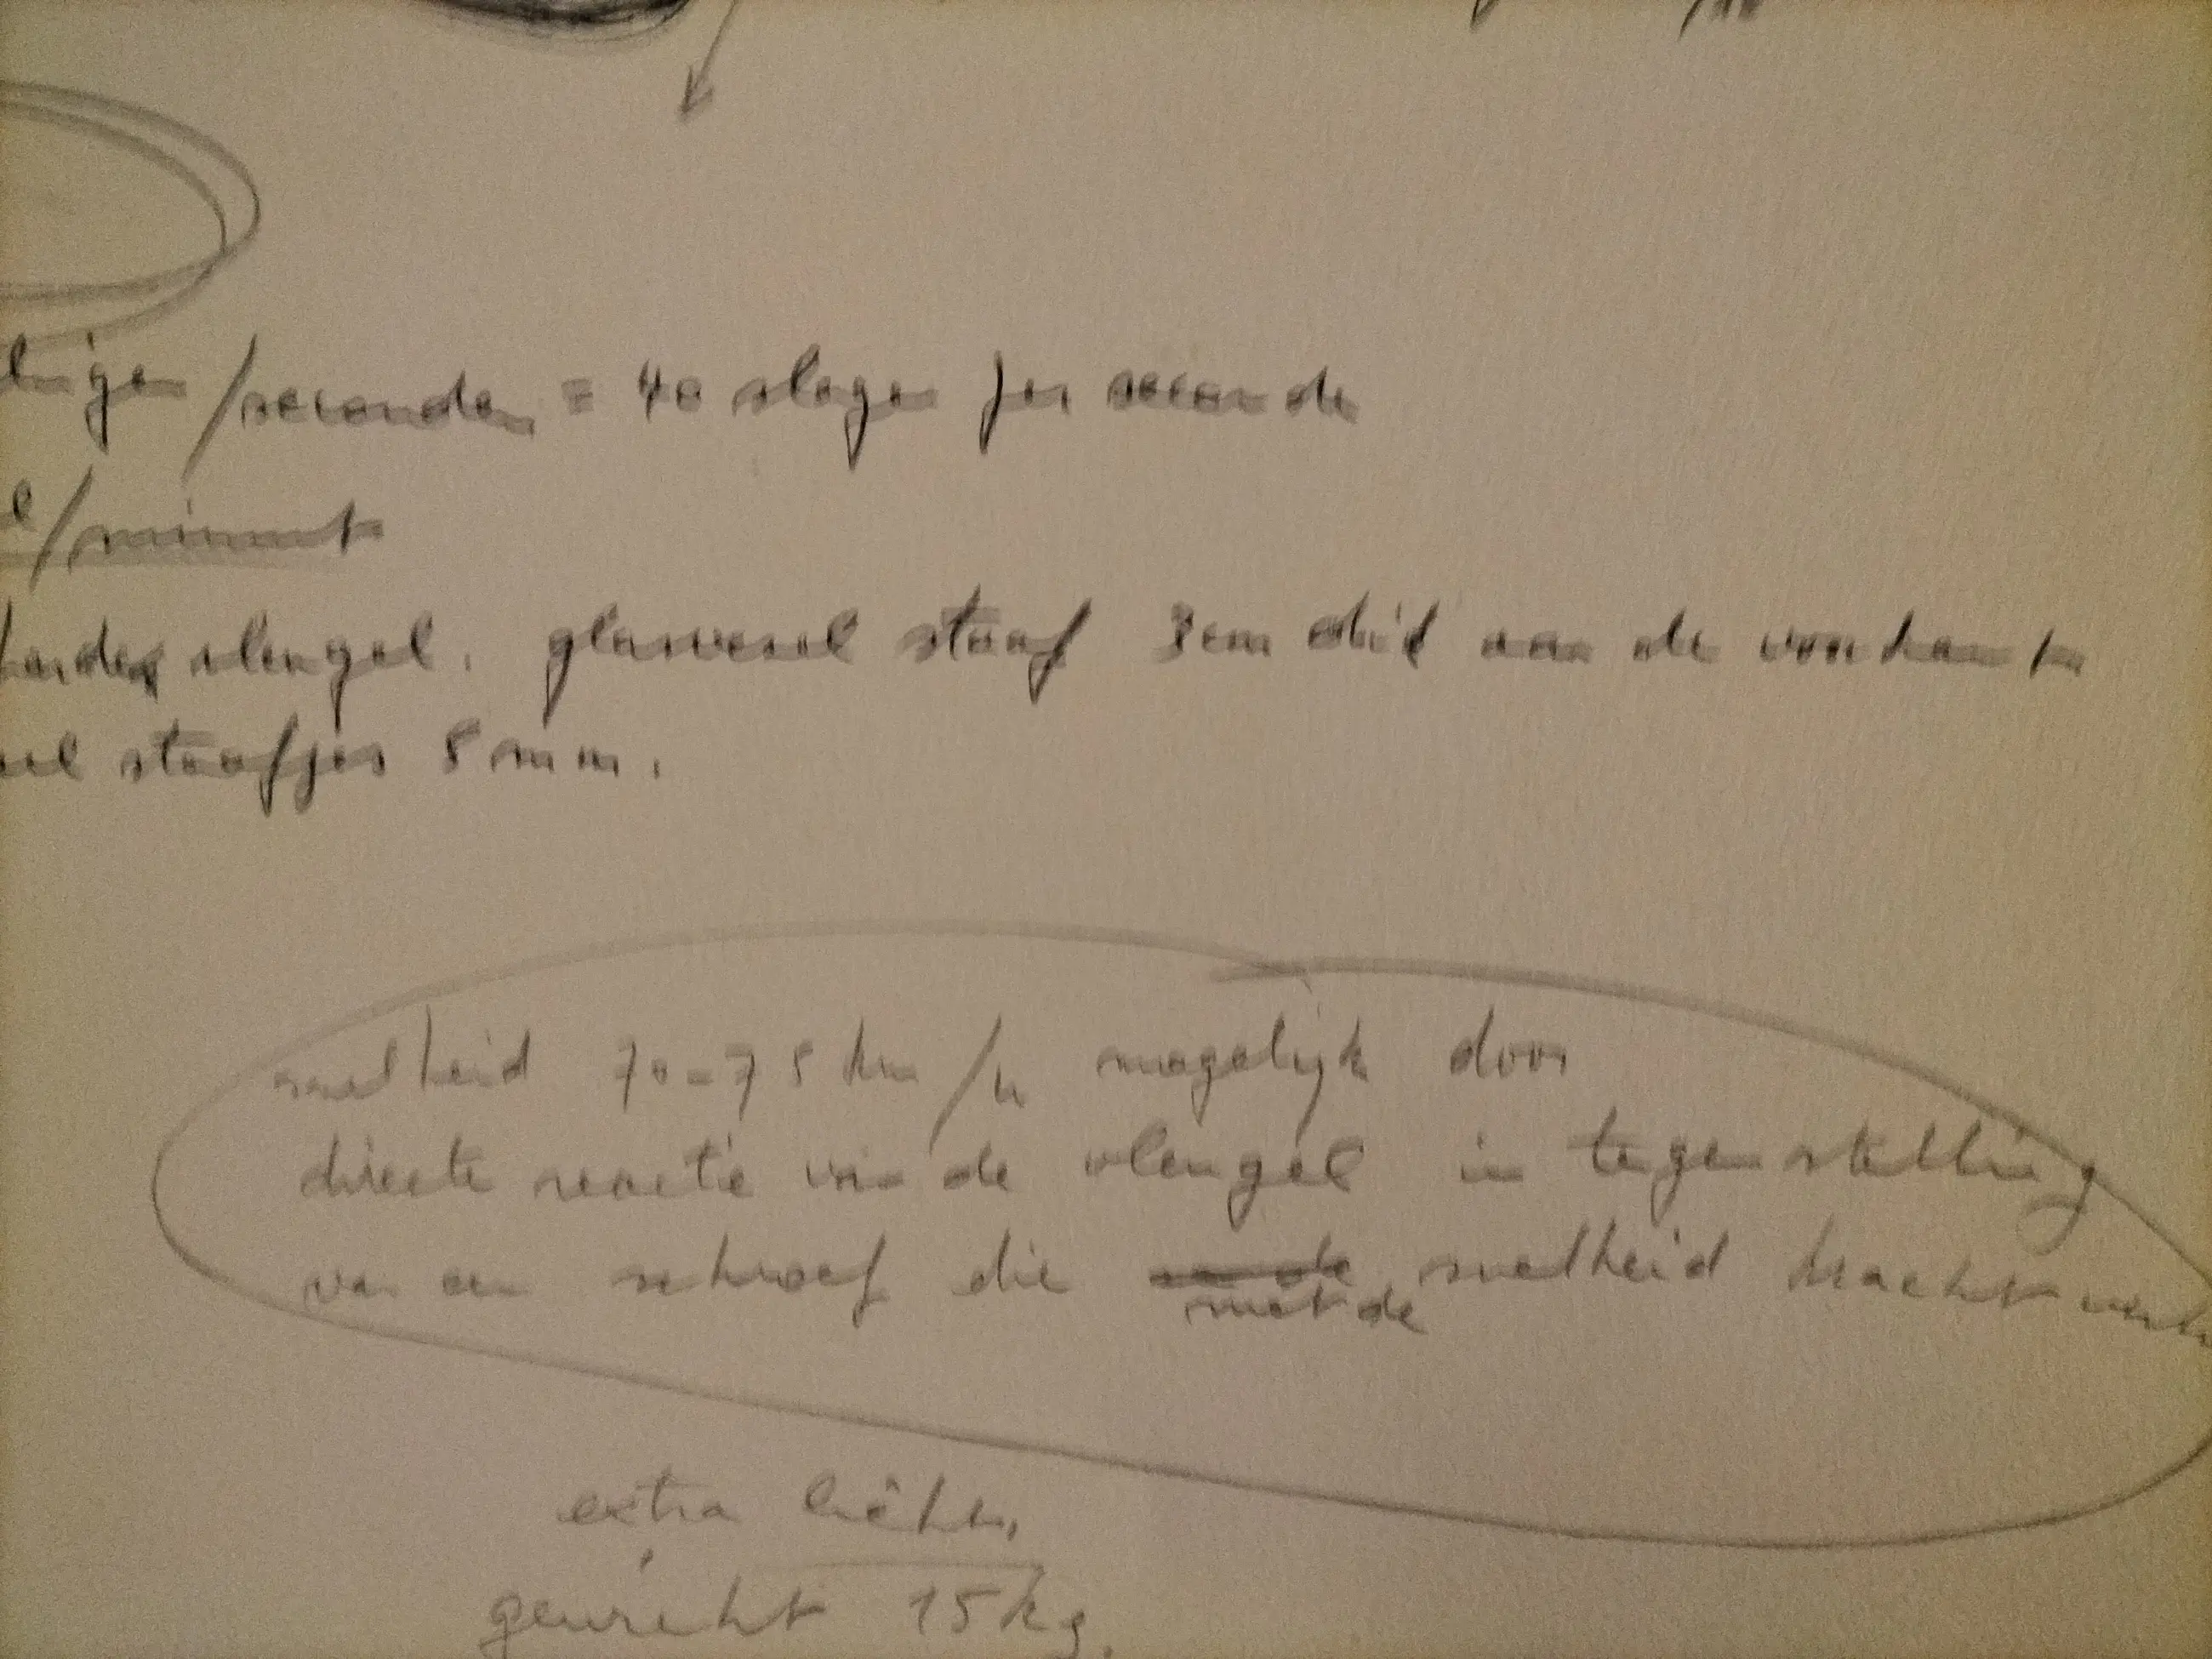 /seconden = 40 slagen per seconde
/minuut
vleugel. glasvesel staaf 3cm dik aan de voorkant
staafjes 8 mm.
snelheid 70-75 km/u mogelijk door
directe reactie van de vleugel in tegenstelling
van een schroef die met de snelheid kracht
extra licht
gewicht 15kg.